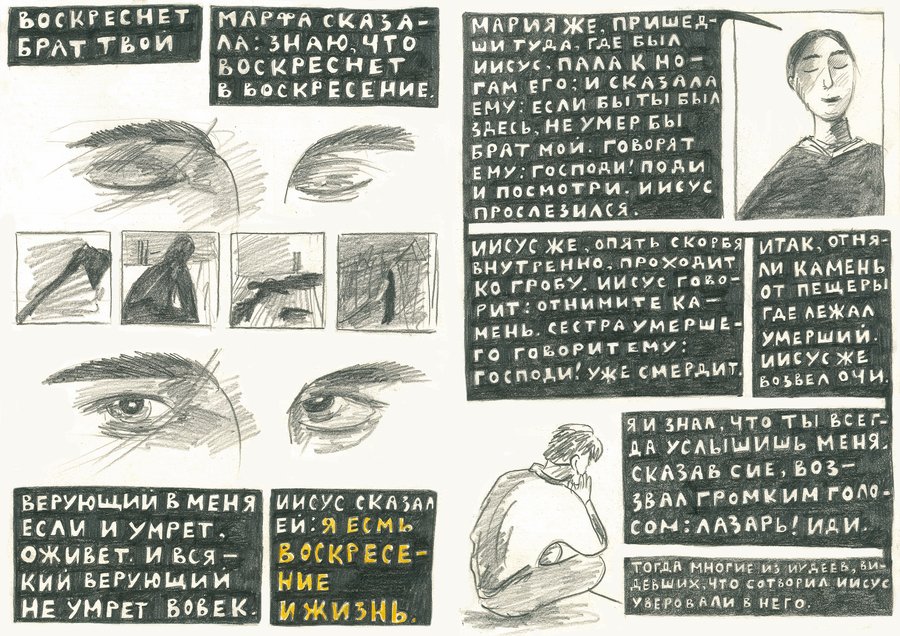 ВОСКРЕСНЕТ
БРАТ ТВОЙ
МАРФА СКАЗА-
ЛА: ЗНАЮ, ЧТО
ВОСКРЕСНЕТ
В ВОСКРЕСЕНИЕ.
ВЕРУЮЩИЙ В МЕНЯ
ЕСЛИ И УМРЕТ,
ОЖИВЕТ. И ВСЯ-
КИЙ ВЕРУЮЩИЙ
НЕ УМРЕТ ВОВЕК.
ИИСУС СКАЗАЛ
ЕЙ: Я ЕСМЬ
ВОСКРЕСЕ-
НИЕ
И ЖИЗНЬ.
МАРИЯ ЖЕ, ПРИШЕД-
ШИ ТУДА, ГДЕ БЫЛ
ИИСУС, ПАЛА К НО-
ГАМ ЕГО; И СКАЗАЛА
ЕМУ: ЕСЛИ БЫ ТЫ БЫЛ
ЗДЕСЬ, НЕ УМЕР БЫ
БРАТ МОЙ. ГОВОРЯТ
ЕМУ: ГОСПОДИ! ПОДИ
И ПОСМОТРИ. ИИСУС
ПРОСЛЕЗИЛСЯ.
ИИСУС ЖЕ, ОПЯТЬ СКОРБЯ
ВНУТРЕННО, ПРОХОДИТ
КО ГРОБУ. ИИСУС ГОВО-
РИТ: ОТНИМИТЕ КА-
МЕНЬ. СЕСТРА УМЕРШЕ-
ГО ГОВОРИТ ЕМУ:
ГОСПОДИ! УЖЕ СМЕРДИТ.
ИТАК, ОТНЯ-
ЛИ КАМЕНЬ
ОТ ПЕЩЕРЫ
ГДЕ ЛЕЖАЛ
УМЕРШИЙ.
ИИСУС ЖЕ
ВОЗВЕЛ ОЧИ.
Я И ЗНАЛ, ЧТО ТЫ ВСЕГ-
ДА УСЛЫШИШЬ МЕНЯ.
СКАЗАВ СИЕ, ВОЗ-
ЗВАЛ ГРОМКИМ ГОЛО-
СОМ: ЛАЗАРЬ! ИДИ.
ТОГДА МНОГИЕ ИЗ ИУДЕЕВ, ВИ-
ДЕВШИХ, ЧТО СОТВОРИЛ ИИСУС
УВЕРОВАЛИ В НЕГО.